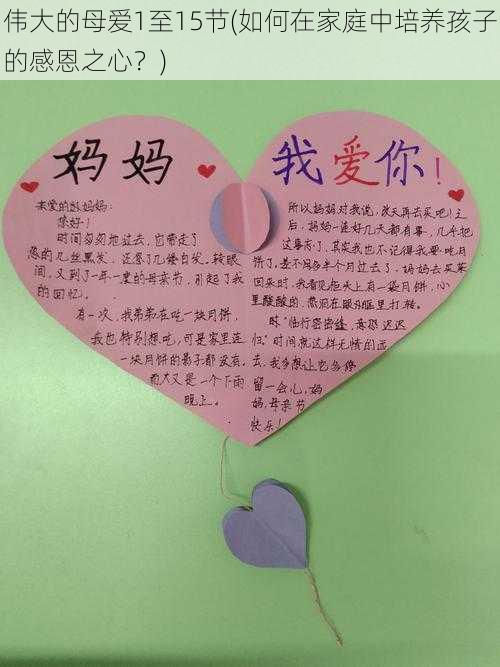 伟大的母爱1至15节(如何在家庭中培养孩子
的感恩之心？)
妈妈
亲爱的妈妈:
您好!
时间匆匆地过去,它带走了
您的几丝黑发,还您了几缕白发。转眼
间,又到了一年一度的母亲节,引起了我
的回忆。
有一次,我弟弟在吃一块月饼,
我也特别想吃,可是家里连
一块月饼的影子都没有,
而天又是一个下雨
晚上。
我爱你!
所以妈妈对我说,改天再去买吧!之
后,妈妈一连好几天都有事,几乎把
这事忘了,其实我也不记得我要吃月
饼了。差不多多半个月过去了,妈妈去买菜
回来时,我看见柜头上有一袋月饼,心
里酸酸的,热泪在眼眶里打转。
咏“临行密密缝,意恐迟迟
归。”时间就这样无情的逝
去,我多想让它多停
留一会儿,妈
妈,母亲节
快乐!